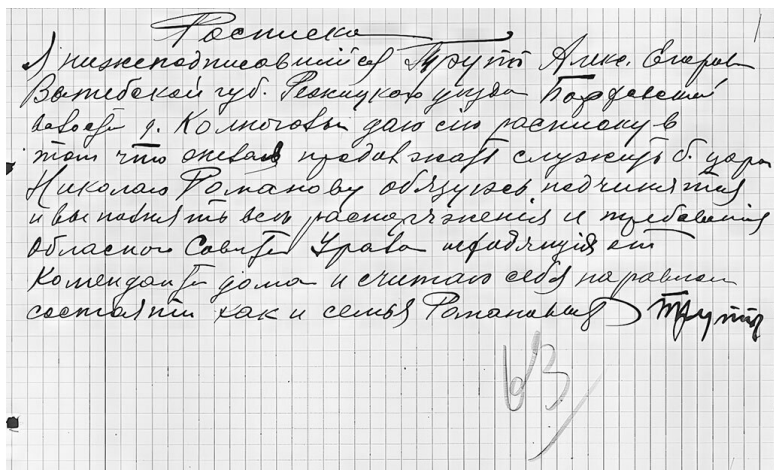 Росписка
Я нижеподписавшийся Труппъ Алекс. Егоров
Витебской губ. Режицкого уезда
волости д. Колноговы даю сию расписку в
том что желая продолжать служить б. царю
Николаю Романову обязуюсь подчинятся
и выполнять весь распоряжения и требования
Обласного Совета Урала исходящия от
Коменданта дома и считать себя на равном
состоянии как и семья Романовых Труппъ